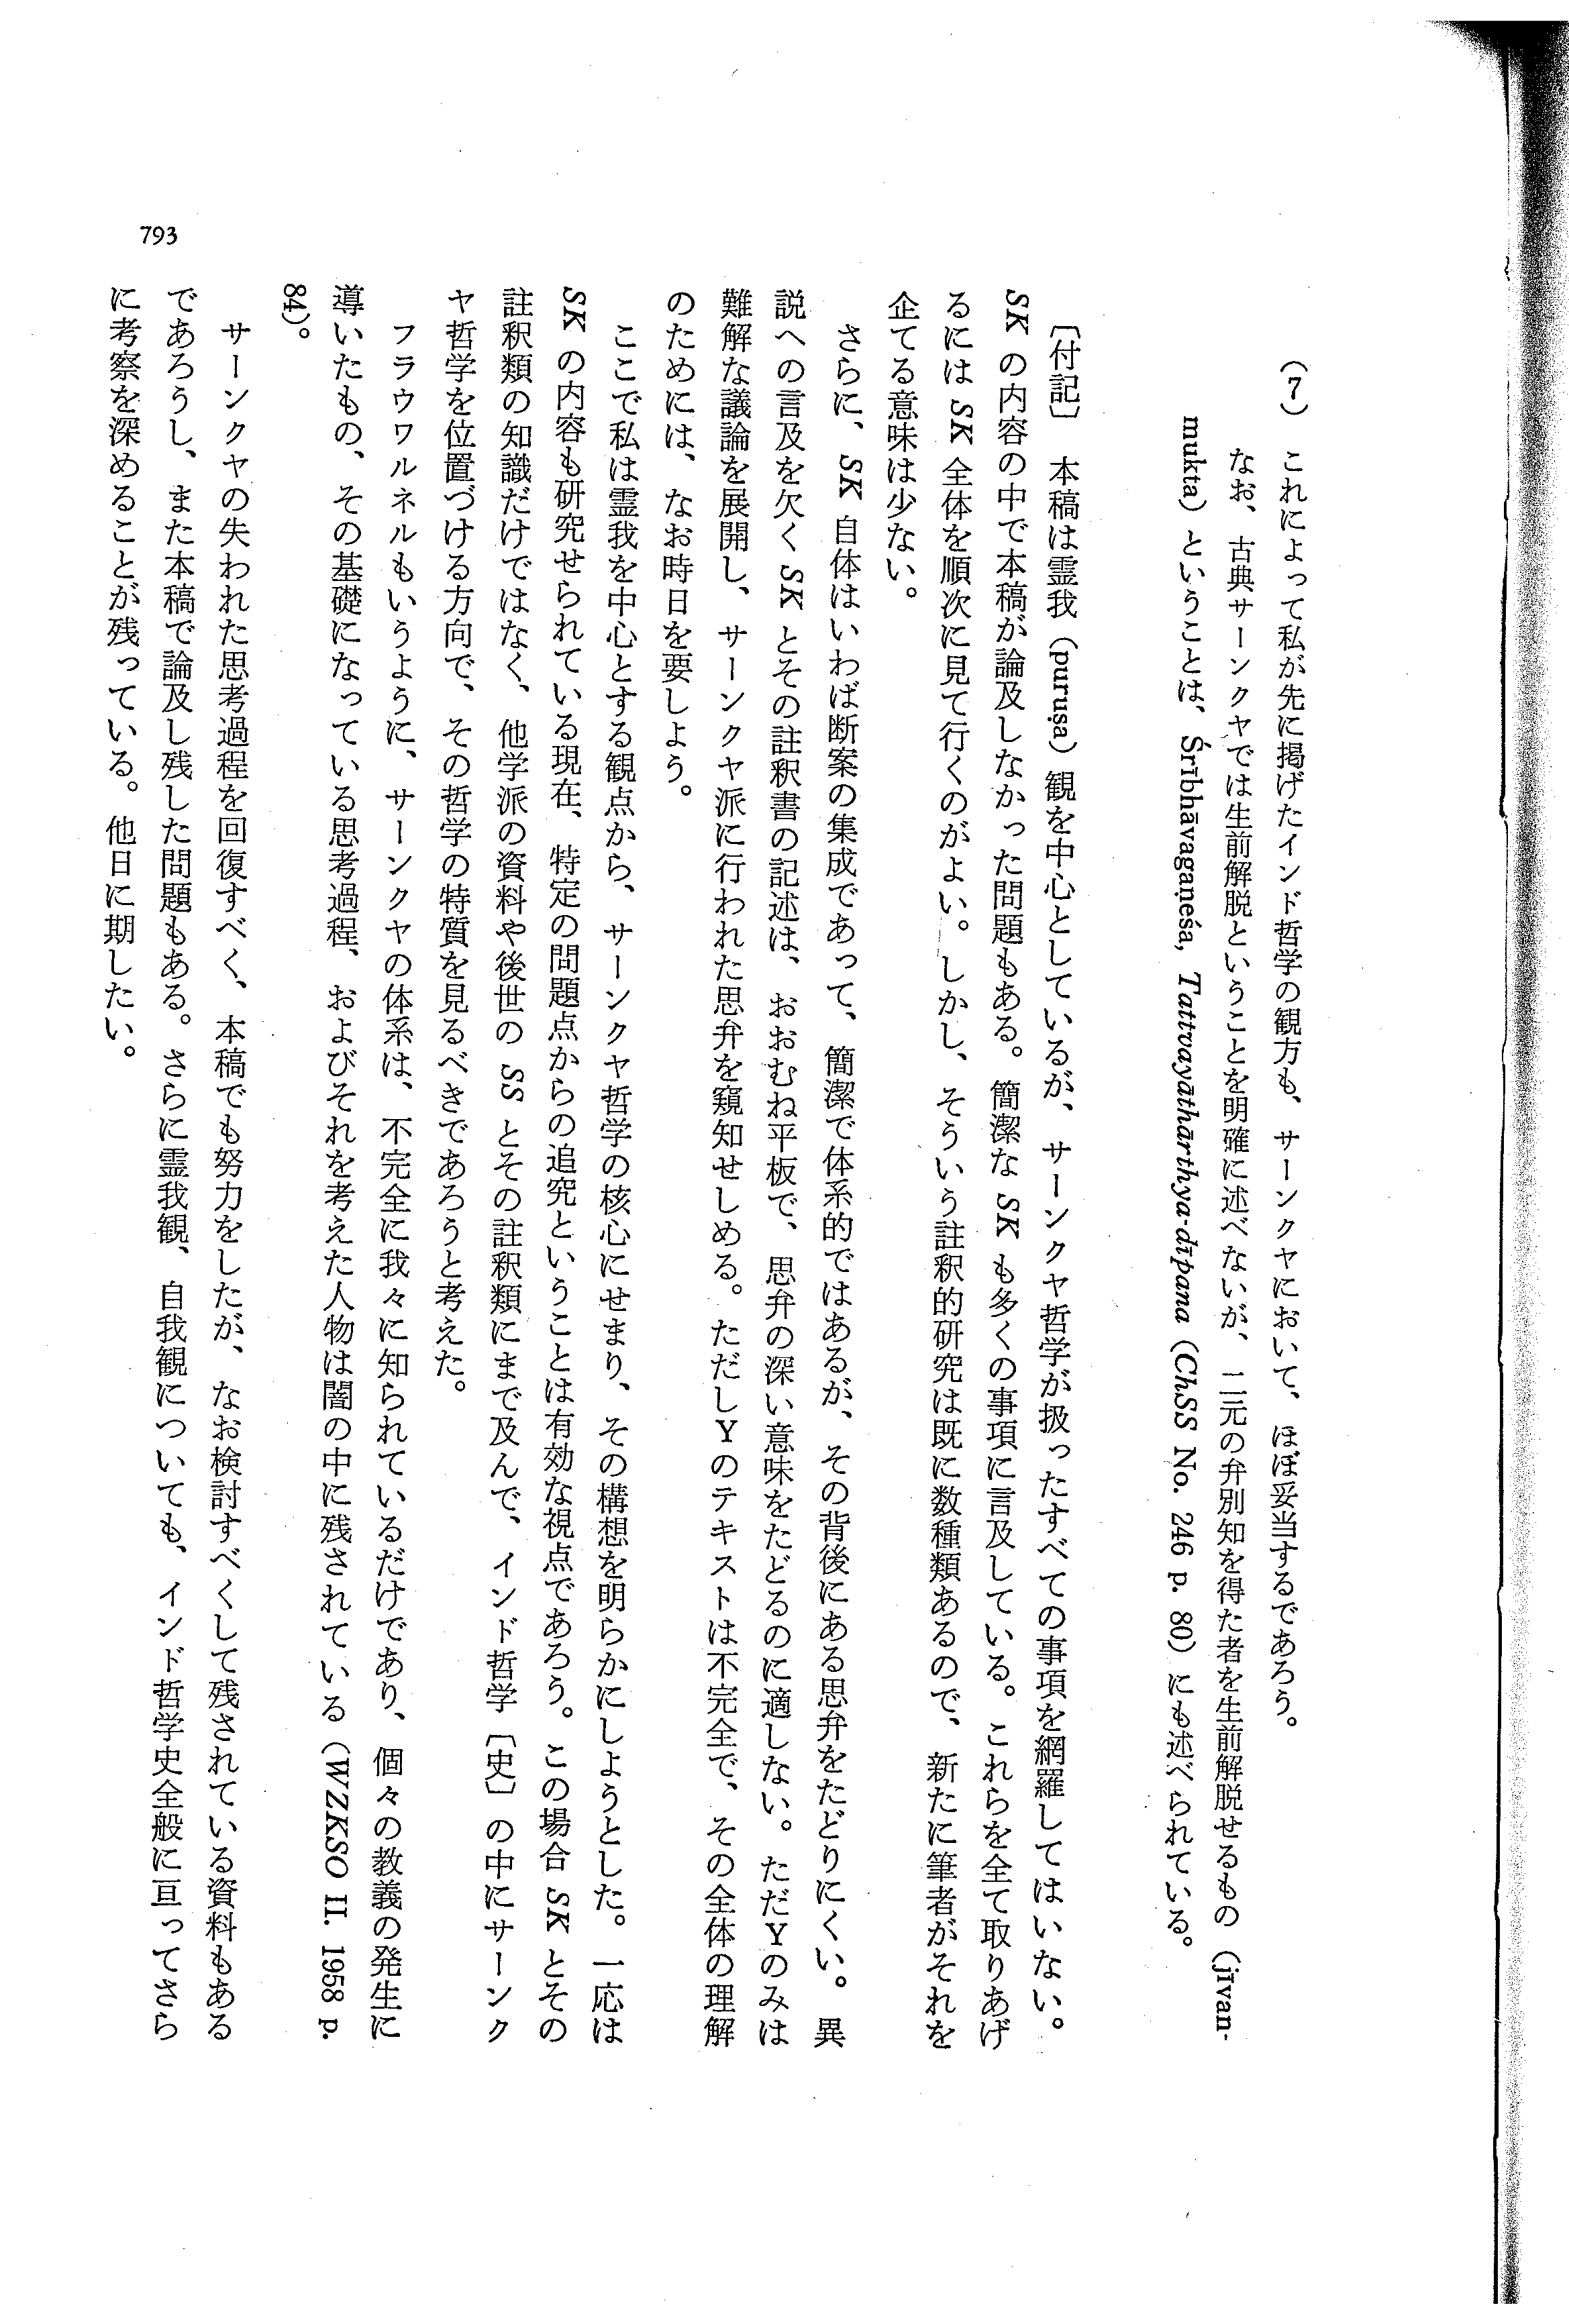 (7) これによって私が先に掲げたインド哲学の観方も、サーンクヤにおいて、ほぼ妥当するであろう。
なお、古典サーンクヤでは生前解脱ということを明確に述べないが、二元の弁別知を得た者を生前解脱せるもの(jīvan-
mukta)ということは、Śrībhāvagaṇeśa, Tattvayāthārthya-dīpana (ChSS No. 246 p. 80) にも述べられている。
〔付記〕 本稿は霊我(puruṣa)観を中心としているが、サーンクヤ哲学が扱ったすべての事項を網羅してはいない。
SK の内容の中で本稿が論及しなかった問題もある。簡潔な SK も多くの事項に言及している。これらを全て取りあげ
るには SK 全体を順次に見て行くのがよい。しかし、そういう註釈的研究は既に数種類あるので、新たに筆者がそれを
企てる意味は少ない。
さらに、SK 自体はいわば断案の集成であって、簡潔で体系的ではあるが、その背後にある思弁をたどりにくい。異
説への言及を欠く SK とその註釈書の記述は、おおむね平板で、思弁の深い意味をたどるのに適しない。ただYのみは
難解な議論を展開し、サーンクヤ派に行われた思弁を窺知せしめる。ただしYのテキストは不完全で、その全体の理解
のためには、なお時日を要しよう。
ここで私は霊我を中心とする観点から、サーンクヤ哲学の核心にせまり、その構想を明らかにしようとした。一応は
SK の内容も研究せられている現在、特定の問題点からの追究ということは有効な視点であろう。この場合 SK とその
註釈類の知識だけではなく、他学派の資料や後世の SS とその註釈類にまで及んで、インド哲学〔史〕の中にサーンク
ヤ哲学を位置づける方向で、その哲学の特質を見るべきであろうと考えた。
フラウワルネルもいうように、サーンクヤの体系は、不完全に我々に知られているだけであり、個々の教義の発生に
導いたもの、その基礎になっている思考過程、およびそれを考えた人物は闇の中に残されている(WZKSO II. 1958 p.
84)。
サーンクヤの失われた思考過程を回復すべく、本稿でも努力をしたが、なお検討すべくして残されている資料もある
であろうし、また本稿で論及し残した問題もある。さらに霊我観、自我観についても、インド哲学史全般に亘ってさら
に考察を深めることが残っている。他日に期したい。
793